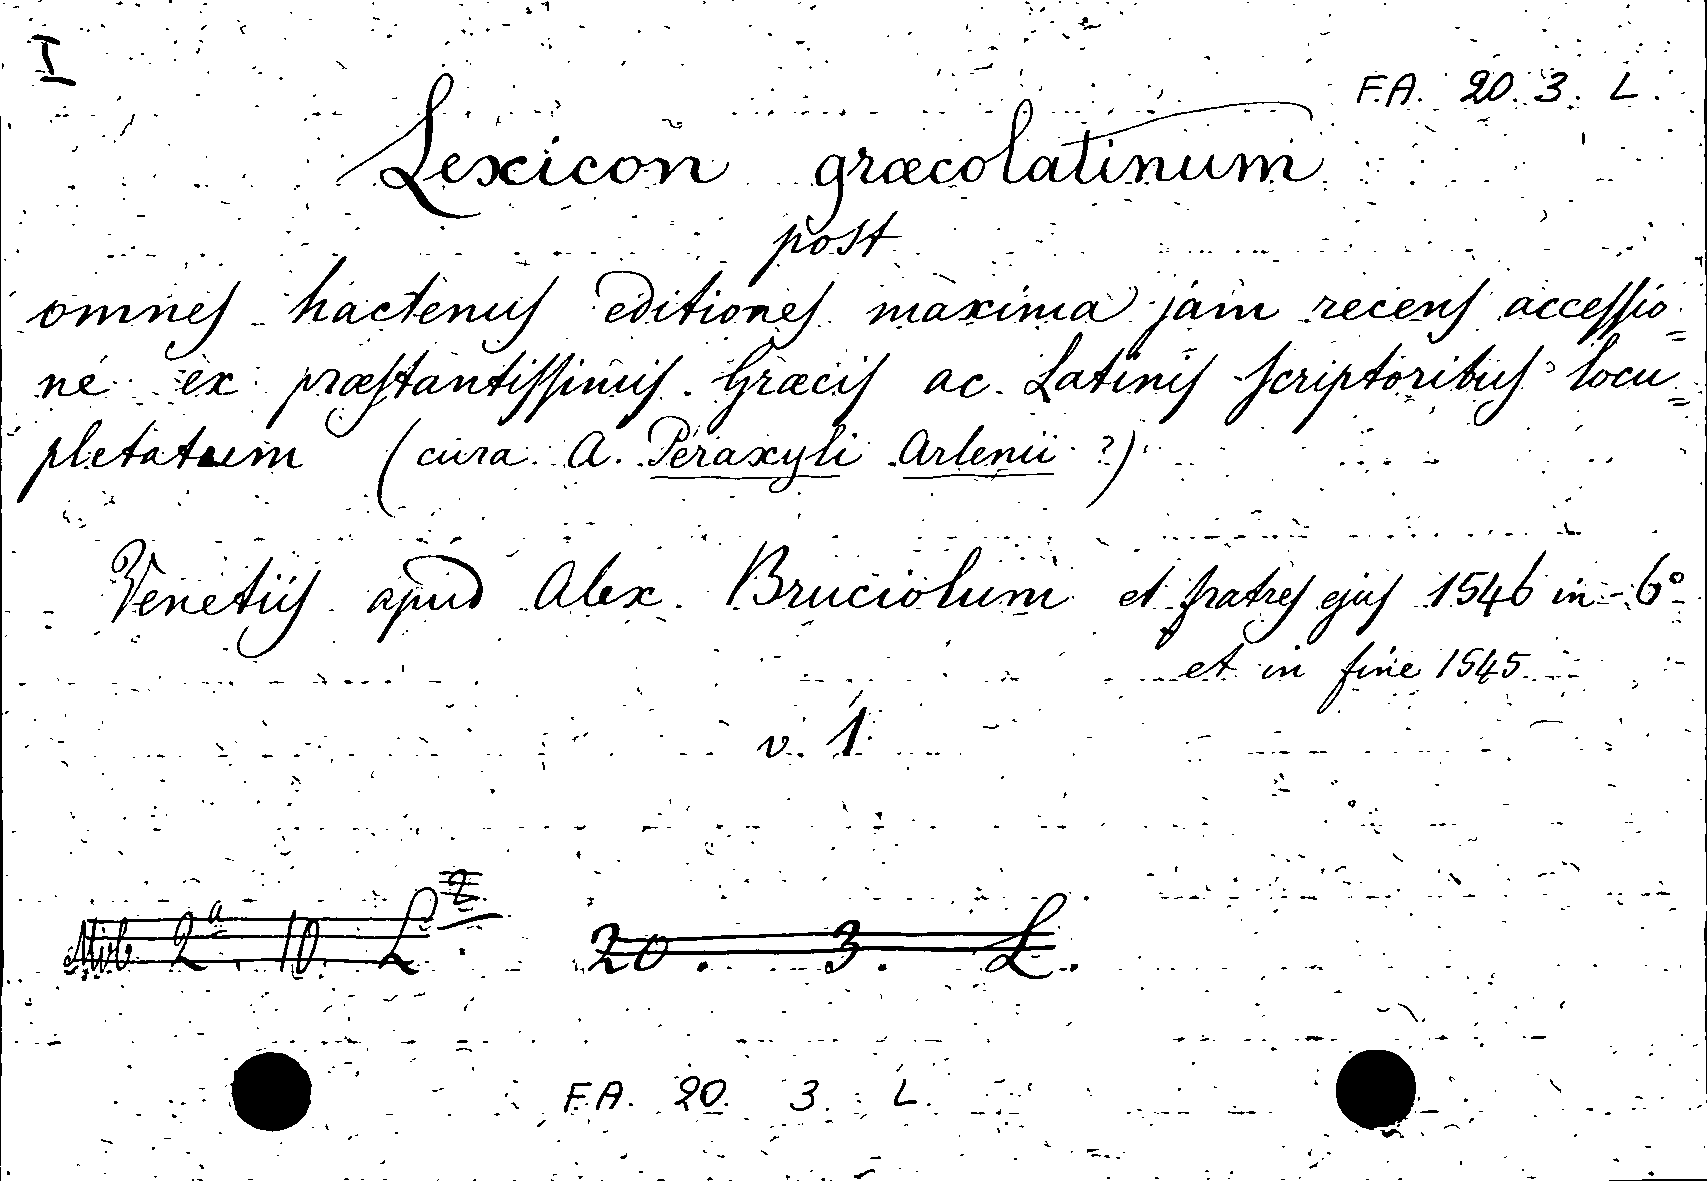 I
F.A. 20. 3. L.
Lexicon græcolatinum
post
omnes hactenus editiones maxima jam recens accessio=
ne ex præstantissimis Græcis ac Latinis scriptoribus locu=
pletatum (cura A. Peraxyli Arlenii ?)
Venetiis apud Alex. Bruciolum et fratres ejus 1546 in-6°
et in fine 1545
v. 1
2ª. 10. L
20. 3. L.
F.A. 20. 3. L.